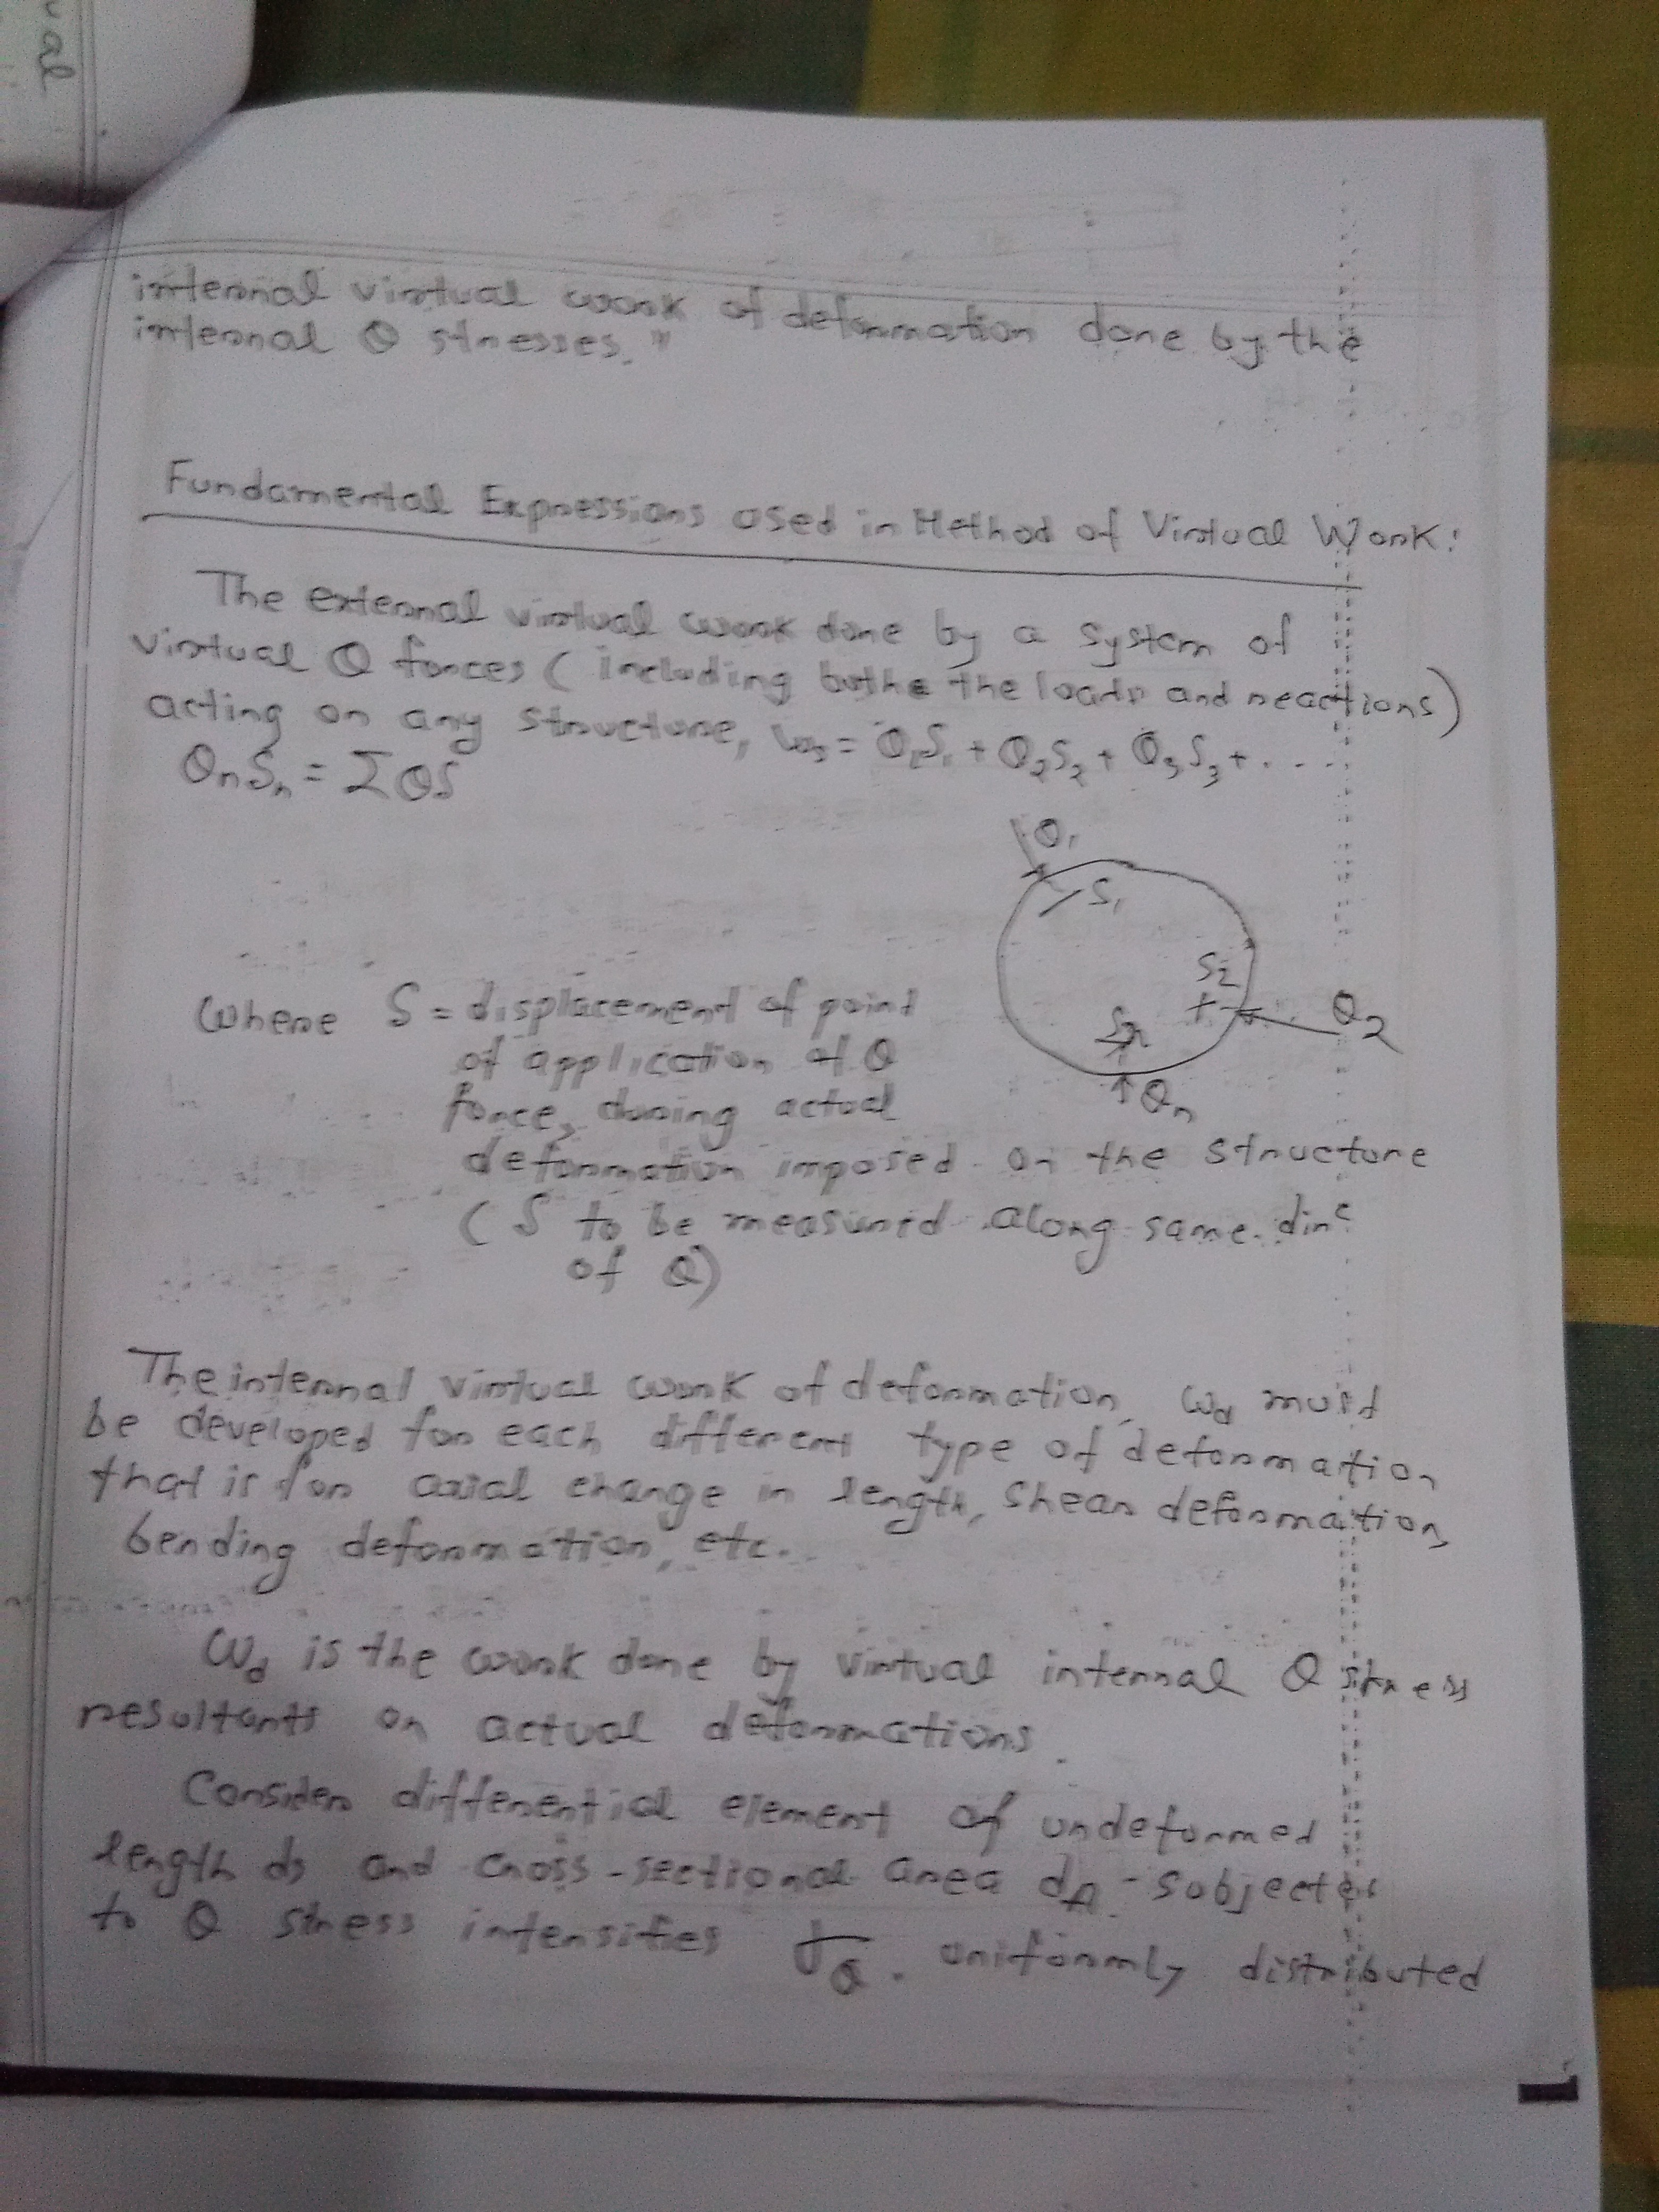 ual
internal virtual work of deformation done by the
internal Q stresses."
Fundamental Expressions Used in Method of Virtual Work:
The external virtual work done by a system of
virtual Q forces (including bothe the loads and reactions)
acting on any structure, Ws = Q₁δ₁ + Q₂δ₂ + Q₃δ₃ + ....
Qnδn = ΣQδ
Q₁
δ₁
δ₂
Q₂
δn
Qn
where δ = displacement of point
of application of Q
force, during actual
deformation imposed on the structure
(δ to be measured along same dirⁿ
of Q)
The internal virtual work of deformation, Wd must
be developed for each different type of deformation
that is for axial change in length, shear deformation,
bending deformation, etc.
Wd is the work done by virtual internal Q stress
resultants on actual deformations.
Consider differential element of undeformed
length ds and cross-sectional area dA subjected
to Q stress intensities σQ. uniformly distributed